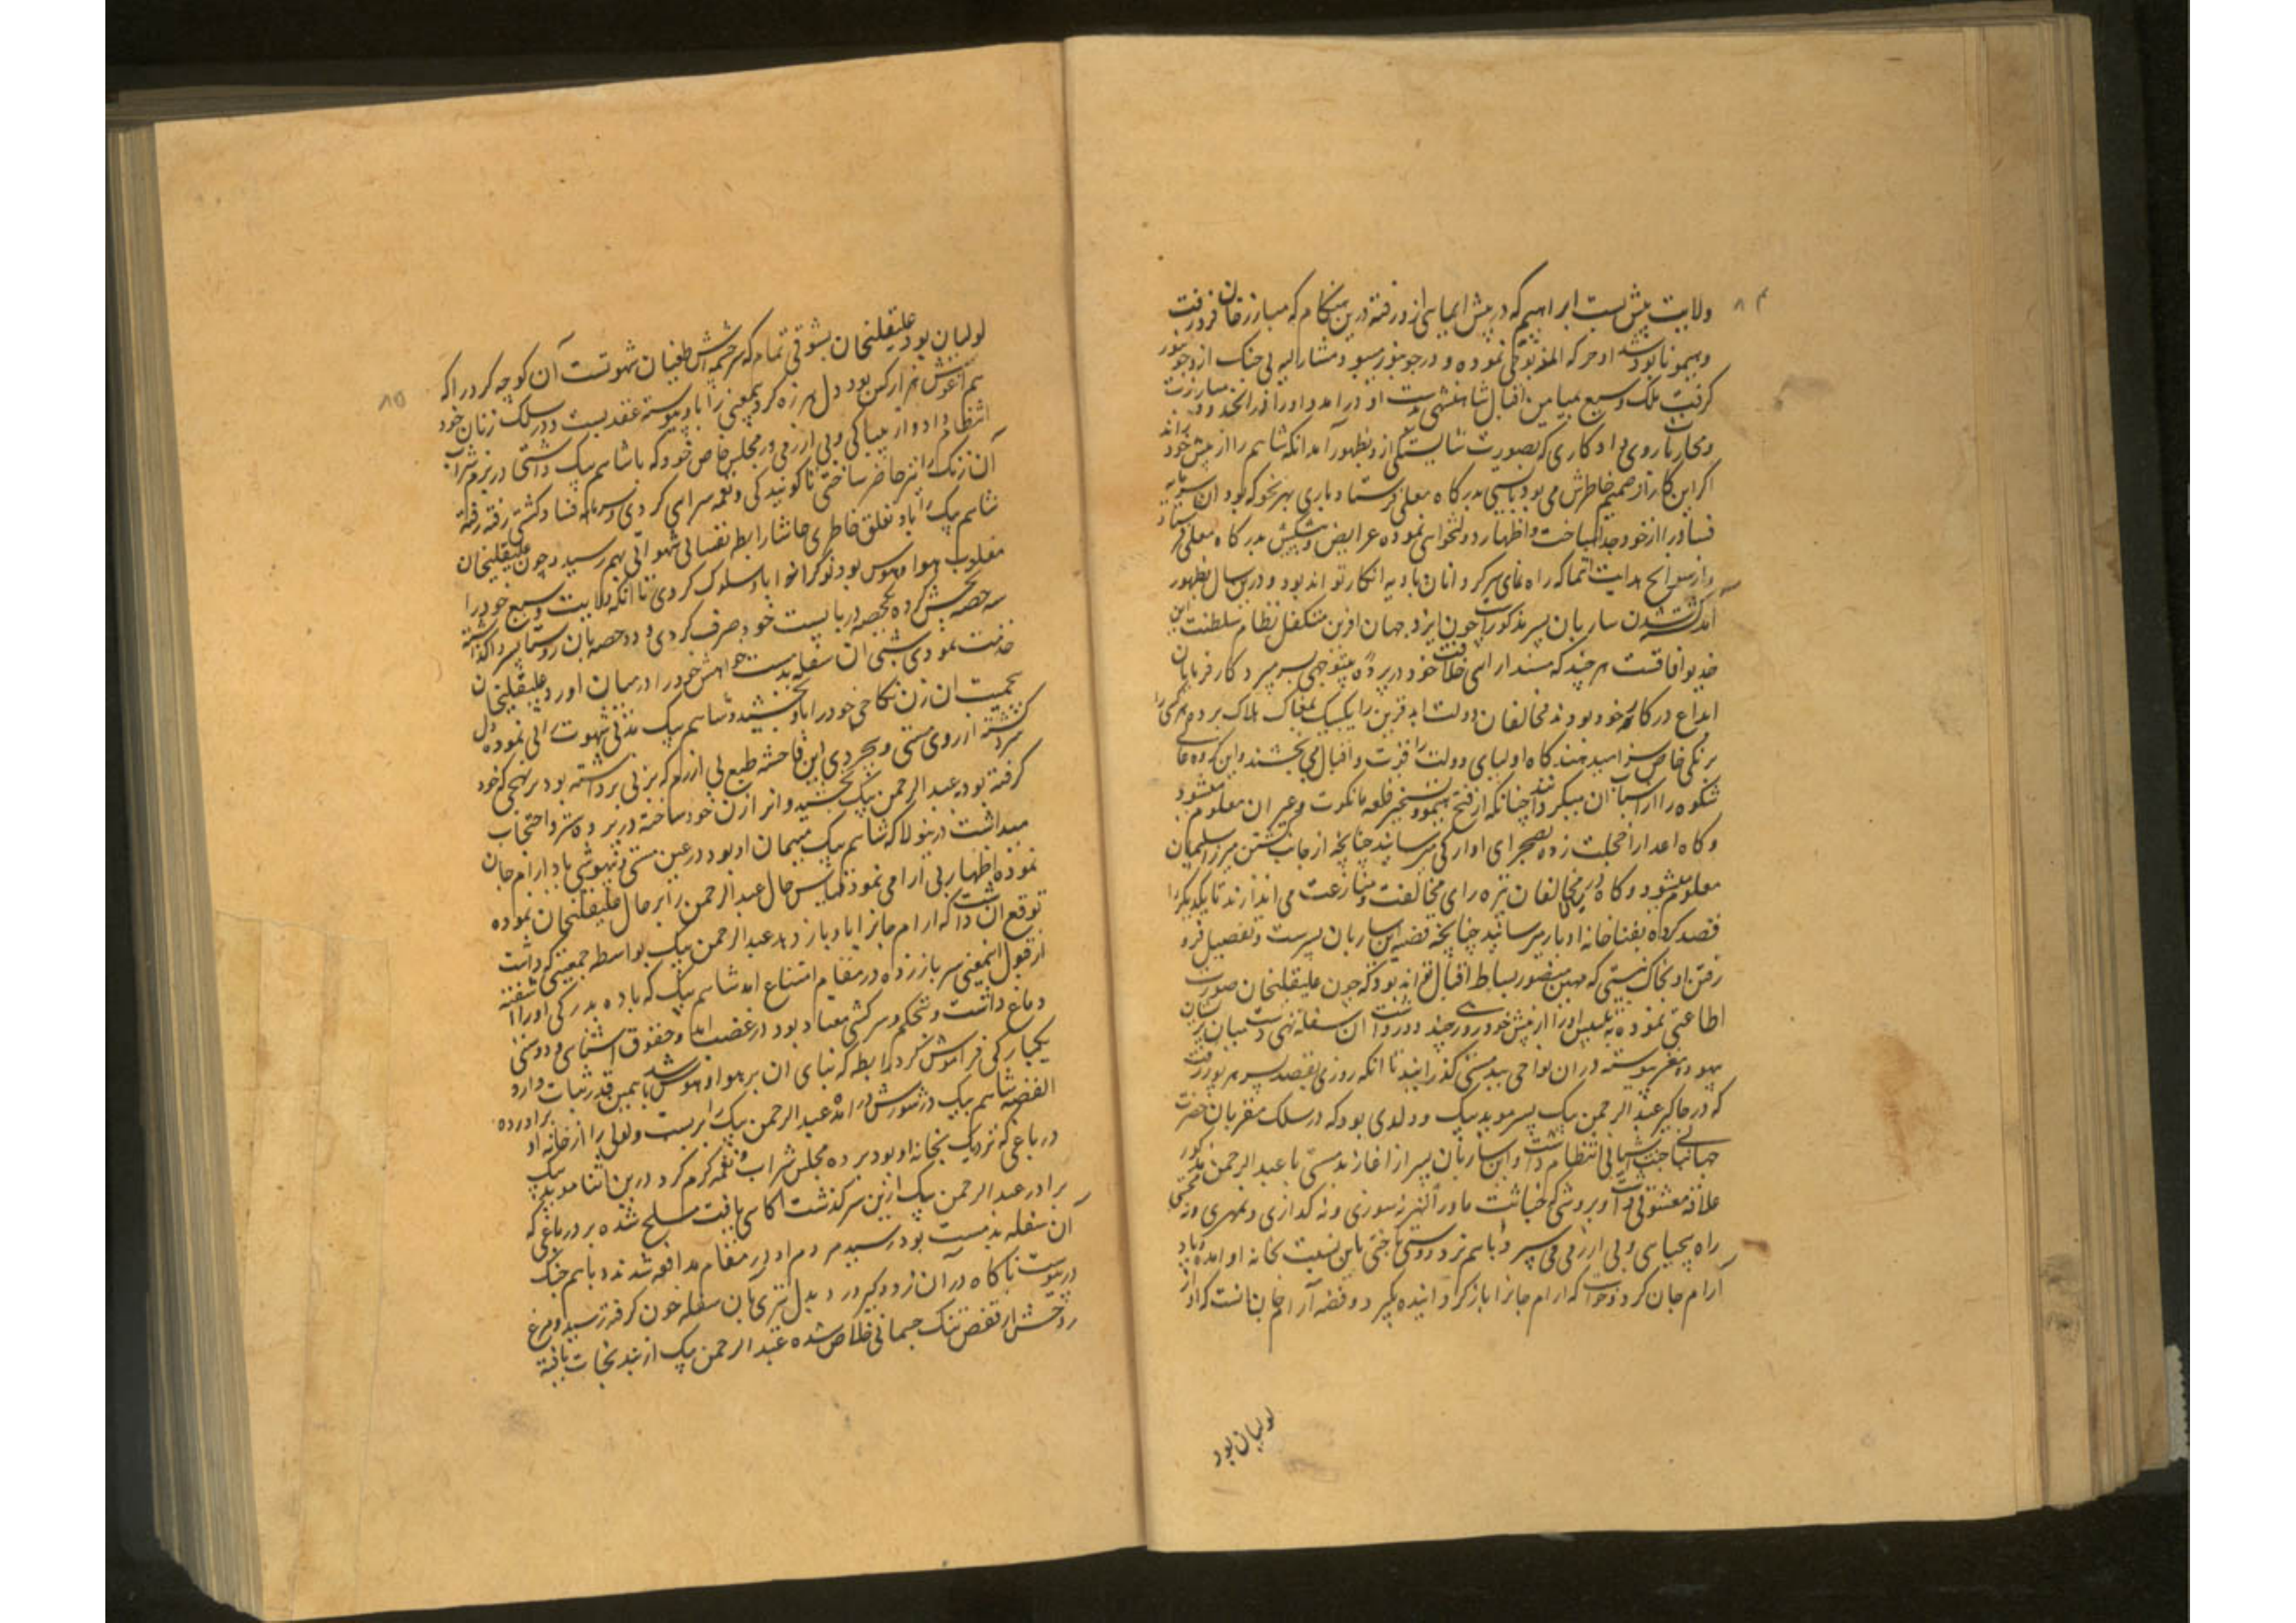 ۸۴
ولایت پیش بست ابراهیم که در پیش ایمائی ازو رفته درین هنگام که مبارزخان فرو رفت
و هیمو نابود شد او حرکه المذبوحی نموده و در جونپور می‌بود و مشارالیه بی جنک ازو جونپور
کرفت ملک وسیع بمیامن اقبال شاهنشهی بدست او در امد و او را قدر انخدود مبارزت
و محاربات روی داد کاری که بصورت شایستکی ازو بظهور آمد انکه شاهم را از پیش خود براند
اکر این کار از صمیم خاطرش می بود بایستی بدرکاه معلی فرستاد باری بهر نحو که بود ان سرمایه
فساد را از خود جدا ساخت و اظهار دولتخواهی نموده عرایض و پیشکش بدرکاه معلی فرستاد
و از سوانح هدایت انتما که راه نمای سرکردانان بادیه انکار تواند بود و درین سال بظهور
آمد کشته شدن ساربان پسر مذکور است چون ایزد جهان افرین متکفل نظام سلطنت این
خدیو افاقست هرچند که مسند ارای خلافت خود در پرده بیتوجهی بسر میبرد کارفرمایان
ابداع در کار خود بودند مخالفان دولت ابد قرین را یکیک بمغاک هلاک برده هر یکی را
برنکی خاص سزا میدهند کاه اولیای دولت را قدرت و اقبال می بخشند و این کروه والا
شکوه را اسباب ان میکردانند چنانکه از فتح هیمو و تسخیر قلعه مانکوت و غیر ان معلوم میشود
و کاه اعدا را خجلت زده بصحرای اوارکی میرسانند چنانچه از جانب کشتن میرزا سلیمان
معلوم میشود و کاه در میان مخالفان تیره رای مخالفت و منازعت می اندازند تا یکدیکر را
قصد کرده بفناخانه ادبار میرسانند چنانچه قضیه این ساربان پسرست و تفصیل فرو
رفتن او بخاک نیستی که مهین منصور بساط اقبال تواند بود که چون علیقلیخان صورت
اطاعتی نموده به تلبیس او را از پیش خود روزی چند دور داشت ان سفله تهی دست میان پریشان
بیهوده مغز پیوسته در ان نواحی ببدمستی کذرانید تا انکه روزی بقصد سرهرپور رفت
که در جاکیر عبد الرحمن بیک پسر موید بیک دولدی بود که در سلک مقربان حضرت
جهانبانی جنت آشیانی انتظام داشت و این ساربان پسر از اغاز بدمستی با عبد الرحمن مذکور
علاقه معشوقی داشت و بروشی که خباثت ماوراءالنهر نه سوزی و نه کدازی و نه مهری و نه محبتی
راه بیحیایی و بی ازرمی می سپرد باهم نرد دوستی باختی باین نسبت بخانه او امده و باد
آرام جان کرد و خواست که ارام جانرا باز کردانیده بکیرد و قصه آرامجان انست که او از
لولیان بود
۸۵
لولیان بود علیقلیخان بشوقی تمام که سرچشمه اش طغیان شهوتست آن کوچه کرد را که
هم آغوش هزار کس بود دل هرزه کرد بمعنی را باو پیوسته عقد بست و در سلک زنان خود
انتظام داد و از بیباکی و بی ازرمی در مجلس خاص خود که با شاهم بیک داشتی در بزم شراب
آن زنک را نیز حاضر ساختی تا کویندکی و نغمه سرایی کردی و سرمایه فساد کشتی رفته رفته
شاهم بیک را باو تعلق خاطری حاشا رابطه نفسانی شهوانی بهم رسید و چون علیقلیخان
مغلوب هوا و هوس بود نوکرانه باو سلوک کردی تا انکه ولایت وسیع خود را
سه حصه بخش کرده یکحصه دربایست خود صرف کردی و دو حصه بان روستا پسر واکذاشته
خدمت نمودی شبی ان سفله بدمست خواهش خود را درمیان اورد علیقلیخان
بحمیت ان زن نکاحی خود را باو بخشید و شاهم بیک مدتی شهوت رانی نموده دل
سرد کشته از روی مستی و بیخردی این فاحشه طبع بی ازرم که بزنی برداشته بود برنهجی که خود
کرفته بود به عبد الرحمن بیک بخشید و او را زن خود ساخته در پرده ستر و احتجاب
میداشت درینولا که شاهم بیک میهمان او بود در عین مستی و بیهوشی یاد ارام جان
نموده اظهار بی آرامی نمود و قیاس حال عبد الرحمن را بر حال علیقلیخان نموده
توقع ان داشت که ارام جانرا باو باز دهد عبد الرحمن بیک بواسطه حمیتی که داشت
از قبول انمعنی سر باز زده در مقام امتناع امد شاهم بیک که باده بدرکی او را اشفته
دماغ داشت و تحکم و سرکشی معتاد بود در غضب امد و حقوق اشنایی و دوستی
یکبارکی فراموش کرد رابطه که بنای ان بر هوا و هوس باشد همین قدر ثبات دارد
القصه شاهم بیک در شورش در امده عبد الرحمن بیک را بربست و لولی را از خانه او براورده
در باغی که نزدیک بخانه او بود برده مجلس شراب و نغمه کرم کرد درین اثنا موید بیک
برادر عبد الرحمن بیک ازین سرکذشت اکاهی یافت مسلح شده بر در باغی که
آن سفله بدمست بود رسید مردم او در مقام مدافعه شدند و باهم جنک
درپیوست ناکاه در آن زد و کیر و دار تیری بان سفله خون کرفته رسید و مرغ
روحش از قفص تنک جسمانی خلاص شده عبد الرحمن بیک از بند نجات یافته